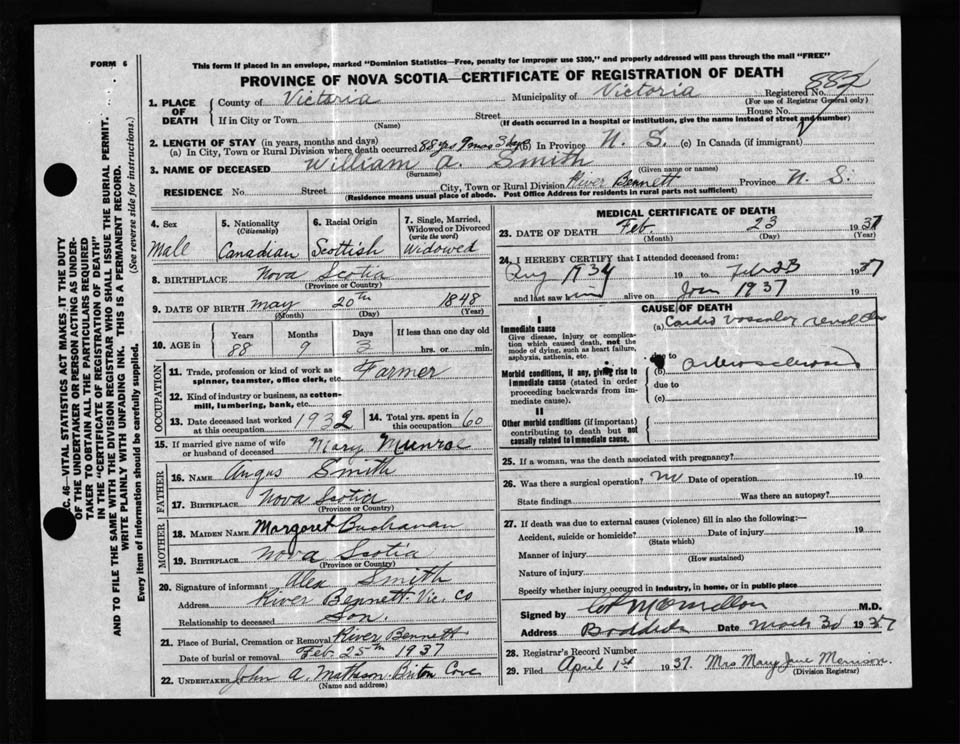 FORM 6
This form if placed in an envelope, marked "Dominion Statistics—Free, penalty for improper use $300," and properly addressed will pass through the mail "FREE"
PROVINCE OF NOVA SCOTIA—CERTIFICATE OF REGISTRATION OF DEATH
C. 46—VITAL STATISTICS ACT MAKES IT THE DUTY
OF THE UNDERTAKER OR PERSON ACTING AS UNDER-
TAKER TO OBTAIN ALL THE PARTICULARS REQUIRED
IN THE "CERTIFICATE OF REGISTRATION OF DEATH"
AND TO FILE THE SAME WITH THE DIVISION REGISTRAR WHO SHALL ISSUE THE BURIAL PERMIT.
WRITE PLAINLY WITH UNFADING INK. THIS IS A PERMANENT RECORD.
Every item of information should be carefully supplied. (See reverse side for instructions.)
1. PLACE OF DEATH County of Victoria Municipality of Victoria Registered No. 882
(For use of Registrar General only)
If in City or Town Street House No.
(Name) (If death occurred in a hospital or institution, give the name instead of street and number)
2. LENGTH OF STAY (in years, months and days)
(a) In City, Town or Rural Division where death occurred 88 yrs 9 mos 3 dys (b) In Province N. S. (c) In Canada (if immigrant)
3. NAME OF DECEASED William A. Smith
(Surname) (Given name or names)
RESIDENCE No. Street City, Town or Rural Division River Bennett Province N. S.
(Residence means usual place of abode. Post Office Address for residents in rural parts not sufficient)
4. Sex Male
5. Nationality (Citizenship) Canadian
6. Racial Origin Scottish
7. Single, Married, Widowed or Divorced (write the word) Widowed
8. BIRTHPLACE Nova Scotia
(Province or Country)
9. DATE OF BIRTH May 20th 1848
(Month) (Day) (Year)
10. AGE in Years 88 Months 9 Days 3 If less than one day old hrs. or min.
OCCUPATION
11. Trade, profession or kind of work as spinner, teamster, office clerk, etc. Farmer
12. Kind of industry or business, as cotton-mill, lumbering, bank, etc.
13. Date deceased last worked at this occupation 1932
14. Total yrs. spent in this occupation 60
15. If married give name of wife or husband of deceased Mary Munroe
FATHER
16. NAME Angus Smith
17. BIRTHPLACE Nova Scotia
(Province or Country)
MOTHER
18. MAIDEN NAME Margaret Buchanan
19. BIRTHPLACE Nova Scotia
(Province or Country)
20. Signature of informant Alex Smith
Address River Bennett Vic. Co
Relationship to deceased Son.
21. Place of Burial, Cremation or Removal River Bennett
Date of burial or removal Feb. 25th 1937
22. UNDERTAKER John A. Matheson Briton Cove
(Name and address)
MEDICAL CERTIFICATE OF DEATH
23. DATE OF DEATH Feb. 23 1937
(Month) (Day) (Year)
24. I HEREBY CERTIFY that I attended deceased from:
Aug 1934 19 to Feb 23 1937
and last saw him alive on Jan 1937 19
CAUSE OF DEATH
I
Immediate cause
Give disease, injury or complication which caused death, not the mode of dying, such as heart failure, asphyxia, asthenia, etc.
(a) Cardio vascular renal dis
Morbid conditions, if any, giving rise to immediate cause (stated in order proceeding backwards from immediate cause).
due to
(b) arteriosclerosis
due to
(c)
II
Other morbid conditions (if important) contributing to death but not causally related to immediate cause.
25. If a woman, was the death associated with pregnancy?
26. Was there a surgical operation? no Date of operation 19
State findings Was there an autopsy?
27. If death was due to external causes (violence) fill in also the following:—
Accident, suicide or homicide? Date of injury 19
(State which)
Manner of injury
(How sustained)
Nature of injury
Specify whether injury occurred in industry, in home, or in public place
Signed by McMillan M.D.
Address Baddeck Date March 30 1937
28. Registrar's Record Number
29. Filed April 1st 1937. Mrs Mary Jane Morrison.
(Division Registrar)